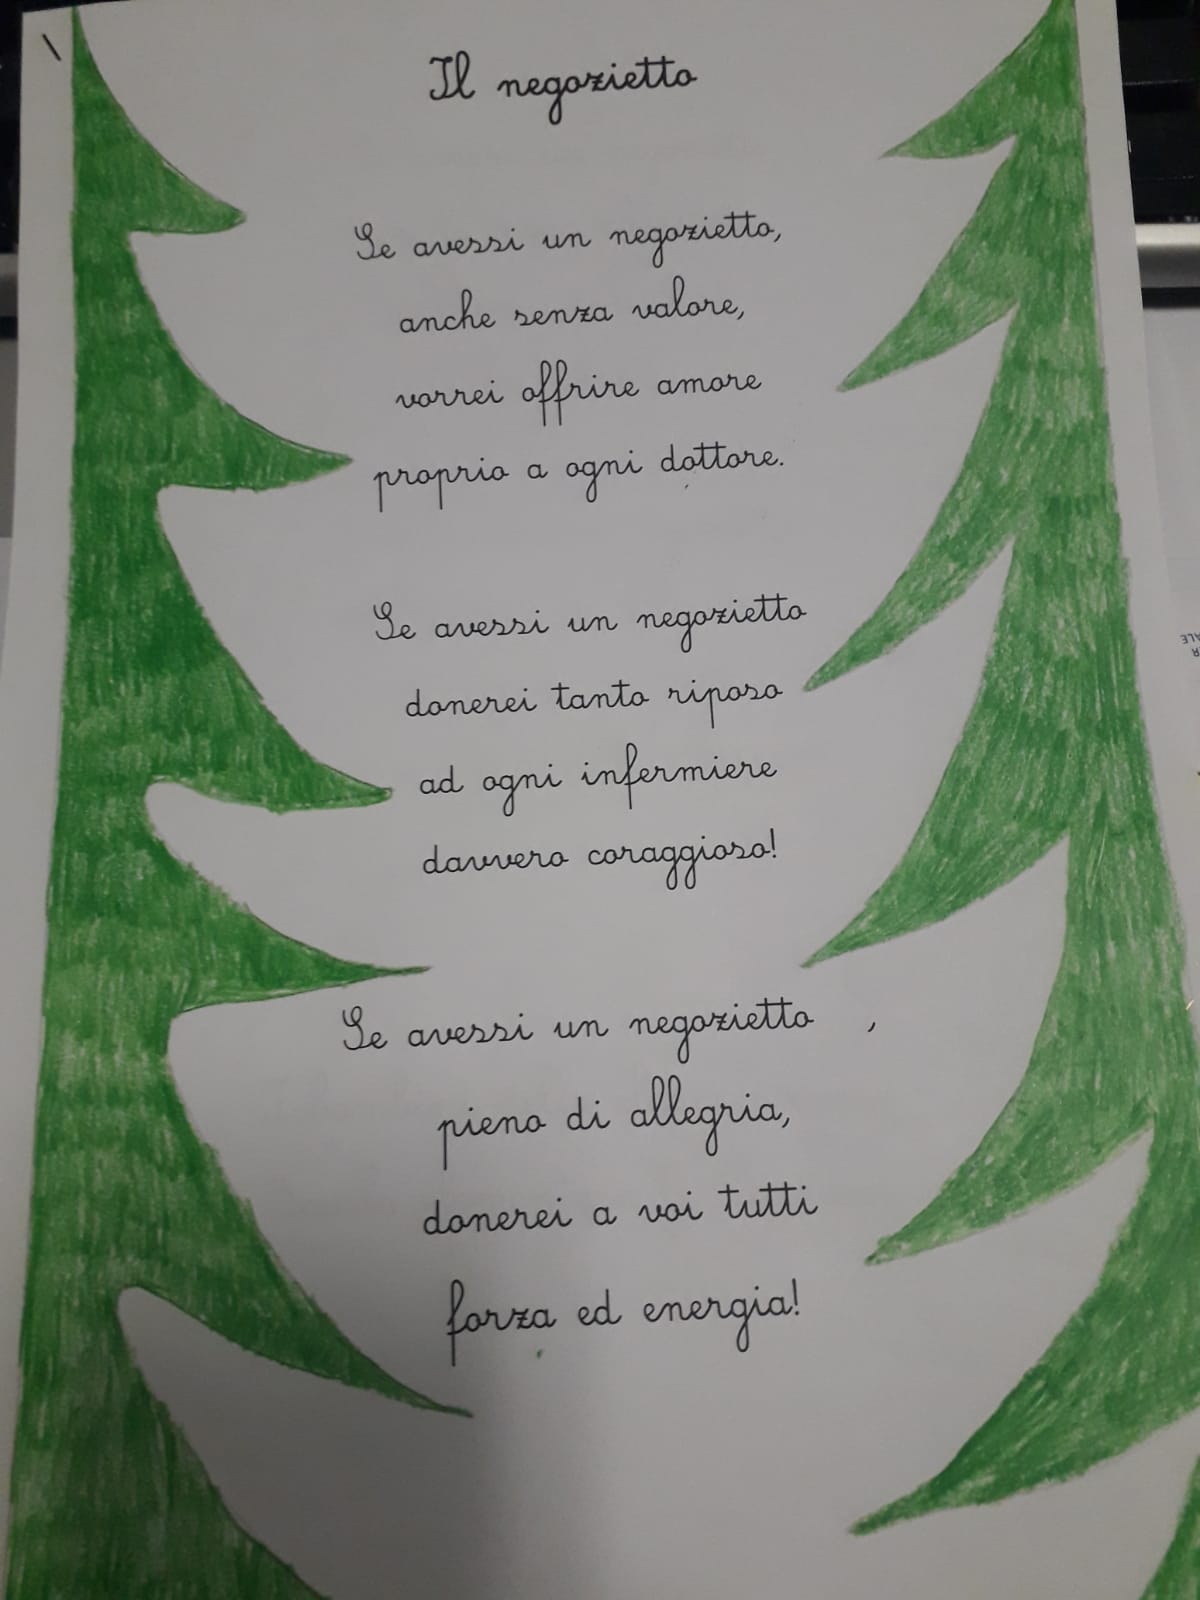 Il negozietto
Se avessi un negozietto,
anche senza valore,
vorrei offrire amore
proprio a ogni dottore.
Se avessi un negozietto
donerei tanto riposo
ad ogni infermiere
davvero coraggioso!
Se avessi un negozietto ,
pieno di allegria,
donerei a voi tutti
forza ed energia!